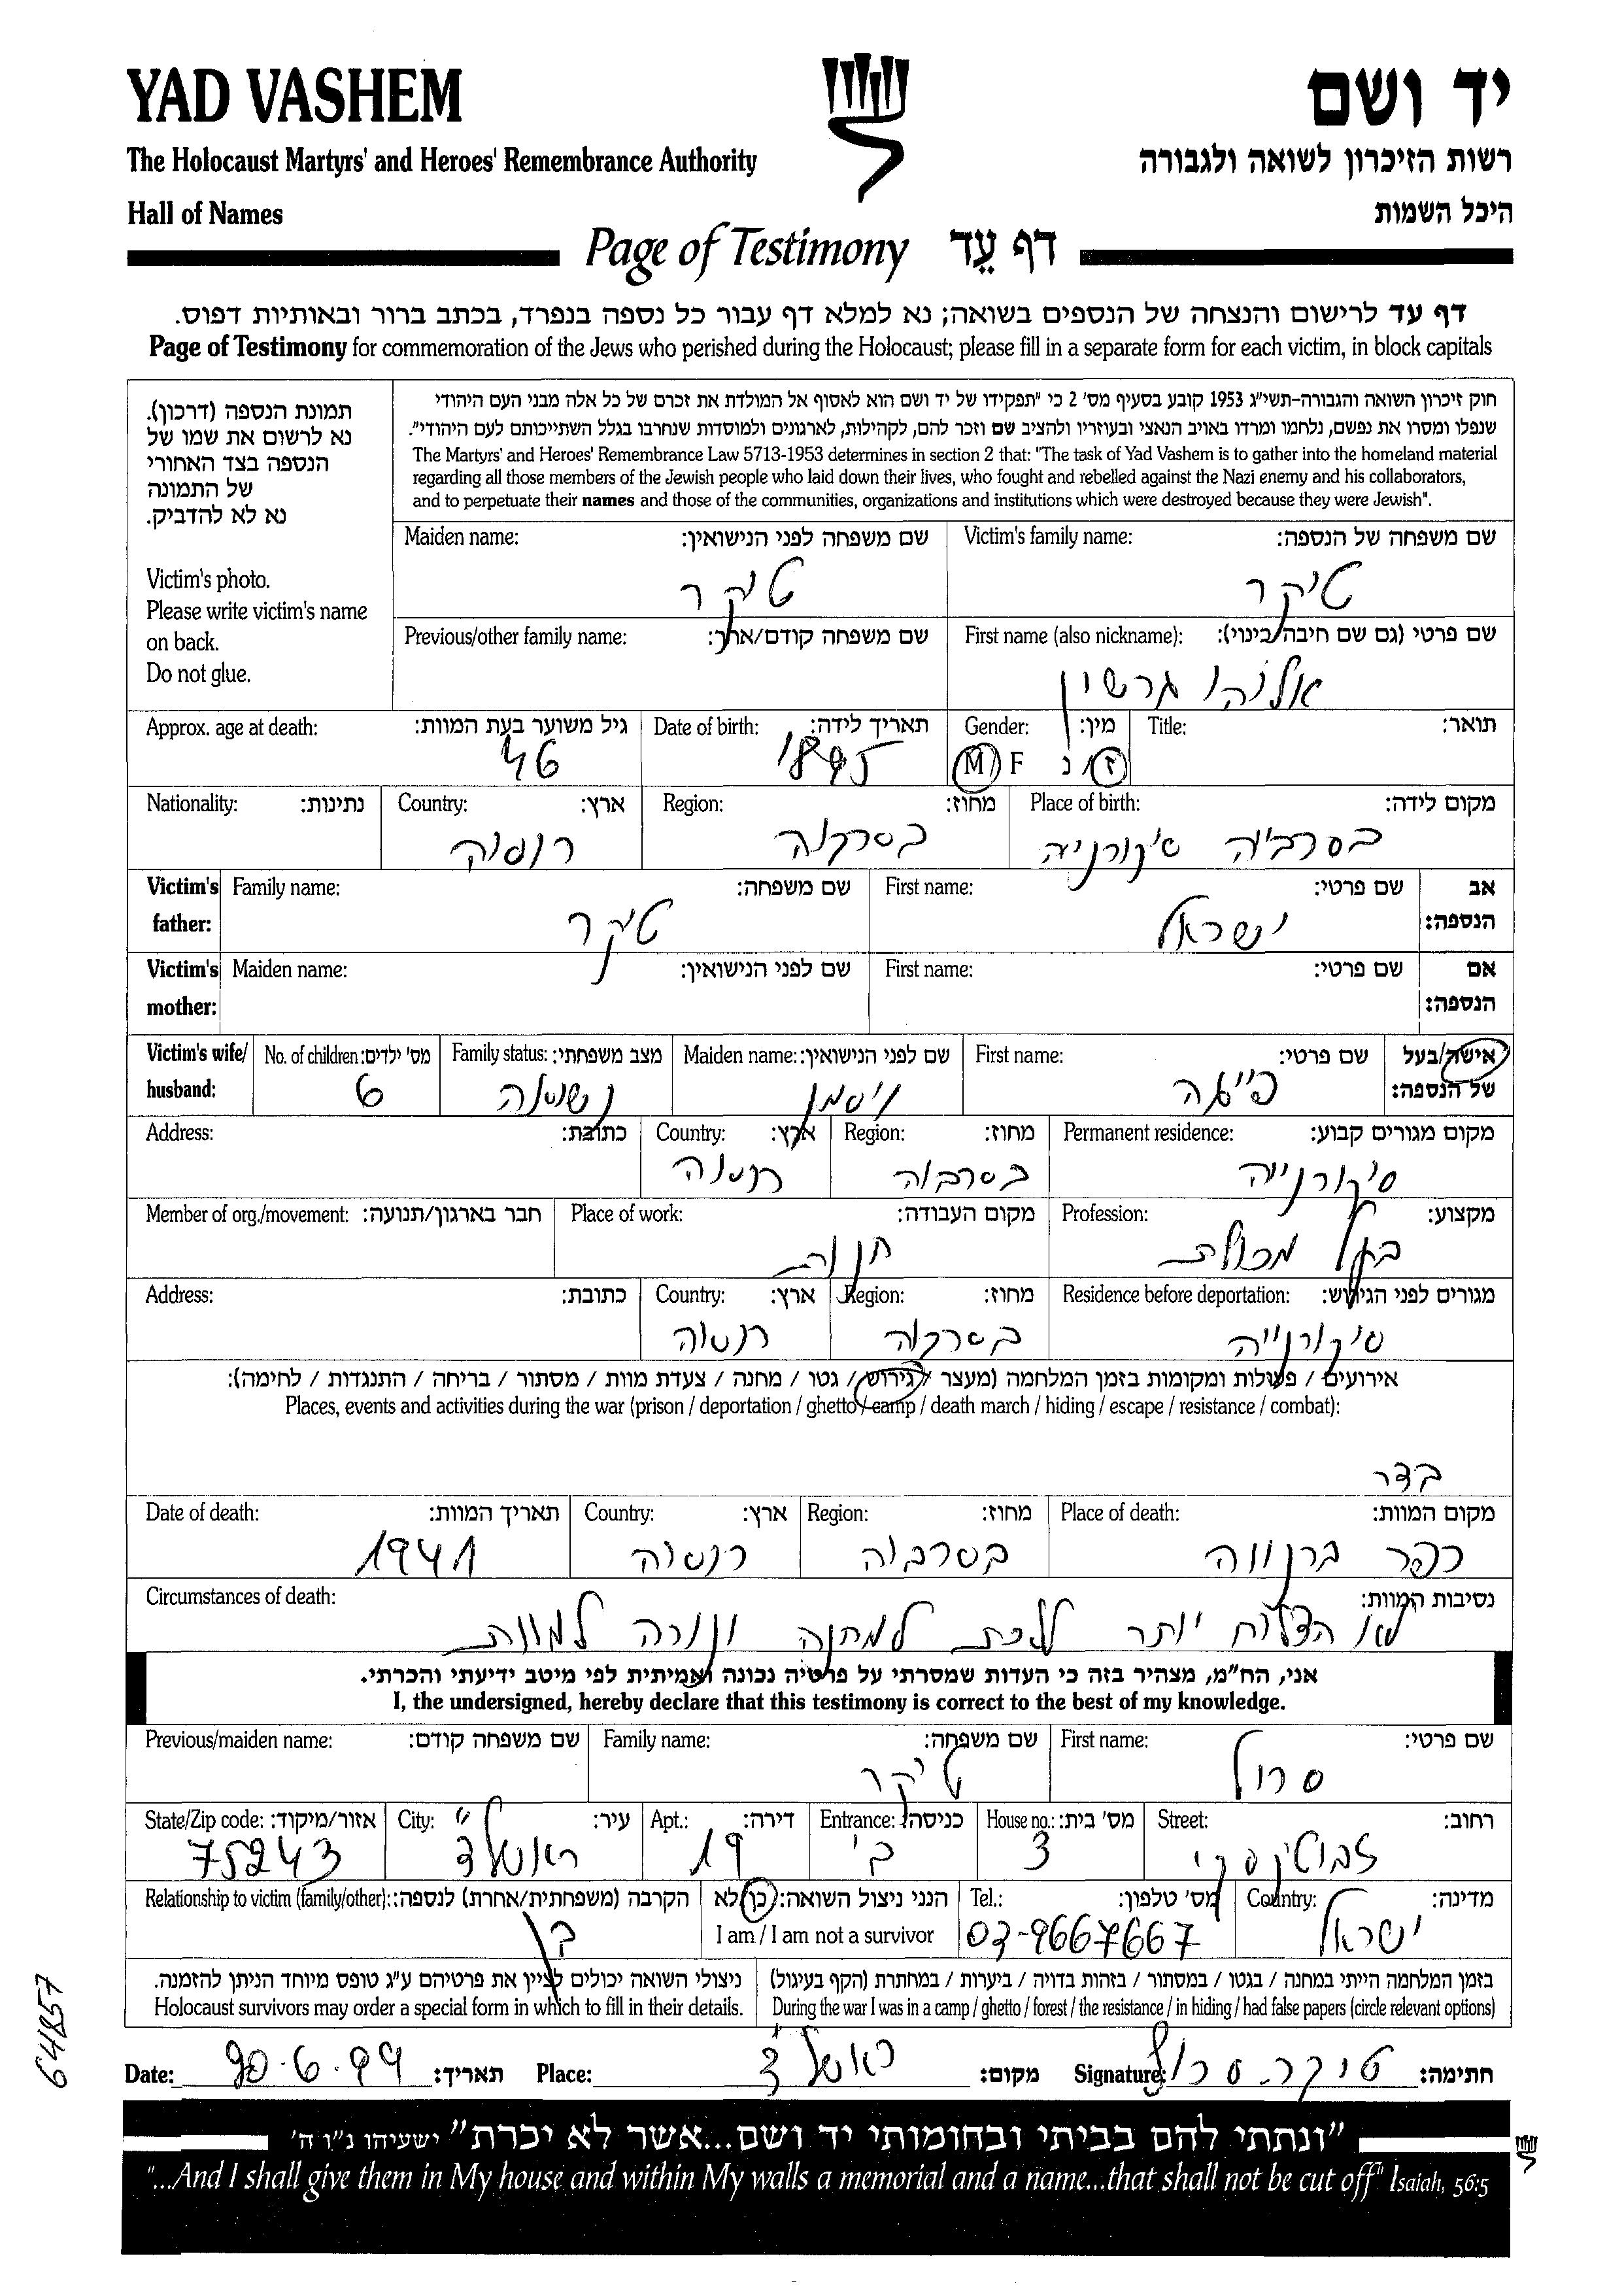 YAD VASHEM
יד ושם
The Holocaust Martyrs' and Heroes' Remembrance Authority
רשות הזיכרון לשואה ולגבורה
Hall of Names
היכל השמות
Page of Testimony דף עֵד
דף עד לרישום והנצחה של הנספים בשואה; נא למלא דף עבור כל נספה בנפרד, בכתב ברור ובאותיות דפוס.
Page of Testimony for commemoration of the Jews who perished during the Holocaust; please fill in a separate form for each victim, in block capitals
תמונת הנספה (דרכון).
נא לרשום את שמו של
הנספה בצד האחורי
של התמונה
נא לא להדביק.
Victim's photo.
Please write victim's name
on back.
Do not glue.
חוק זיכרון השואה והגבורה-תשי"ג 1953 קובע בסעיף מס' 2 כי "תפקידו של יד ושם הוא לאסוף אל המולדת את זכרם של כל אלה מבני העם היהודי
שנפלו ומסרו את נפשם, נלחמו ומרדו באויב הנאצי ובעוזריו ולהציב שם וזכר להם, לקהילות, לארגונים ולמוסדות שנחרבו בגלל השתייכותם לעם היהודי".
The Martyrs' and Heroes' Remembrance Law 5713-1953 determines in section 2 that: "The task of Yad Vashem is to gather into the homeland material
regarding all those members of the Jewish people who laid down their lives, who fought and rebelled against the Nazi enemy and his collaborators,
and to perpetuate their names and those of the communities, organizations and institutions which were destroyed because they were Jewish".
Victim's family name: שם משפחה של הנספה:
טיקר
Maiden name: שם משפחה לפני הנישואין:
טיקר
First name (also nickname): שם פרטי (גם שם חיבה/כינוי):
אליהו גרשון
Previous/other family name: שם משפחה קודם/אחר:
Title: תואר:
Gender: מין:
M / F ז / נ
Date of birth: תאריך לידה:
1895
Approx. age at death: גיל משוער בעת המוות:
46
Place of birth: מקום לידה:
בסרביה סיקורנייה
Region: מחוז:
בסרביה
Country: ארץ:
רומניה
Nationality: נתינות:
אב הנספה:
First name: שם פרטי:
ישראל
Family name: שם משפחה:
טיקר
Victim's father:
אם הנספה:
First name: שם פרטי:
Maiden name: שם לפני הנישואין:
Victim's mother:
אישה/בעל של הנספה:
First name: שם פרטי:
פייגה
Maiden name: שם לפני הנישואין:
ויסמן
Family status: מצב משפחתי:
נשואה
No. of children: מס' ילדים:
6
Victim's wife/ husband:
Permanent residence: מקום מגורים קבוע:
סיקורנייה
Region: מחוז:
בסרביה
Country: ארץ:
רומניה
Address: כתובת:
Profession: מקצוע:
בעל מכולת
Place of work: מקום העבודה:
חנות
Member of org./movement: חבר בארגון/תנועה:
Residence before deportation: מגורים לפני הגירוש:
סיקורנייה
Region: מחוז:
בסרביה
Country: ארץ:
רומניה
Address: כתובת:
אירועים / פעולות ומקומות בזמן המלחמה (מעצר / גירוש / גטו / מחנה / צעדת מוות / מסתור / בריחה / התנגדות / לחימה):
Places, events and activities during the war (prison / deportation / ghetto / camp / death march / hiding / escape / resistance / combat):
Place of death: מקום המוות:
כפר ברנווה
Region: מחוז:
בסרביה
Country: ארץ:
רומניה
Date of death: תאריך המוות:
1941
Circumstances of death: נסיבות המוות:
לא הצליח יותר ללכת למחנה ונורה למוות
אני, הח"מ, מצהיר בזה כי העדות שמסרתי על פרטיה נכונה ואמיתית לפי מיטב ידיעתי והכרתי.
I, the undersigned, hereby declare that this testimony is correct to the best of my knowledge.
First name: שם פרטי:
סרול
Family name: שם משפחה:
טיקר
Previous/maiden name: שם משפחה קודם:
Street: רחוב:
ז'בוטינסקי
House no.: מס' בית:
3
Entrance: כניסה:
ב'
Apt.: דירה:
19
City: עיר:
ראשל"צ
State/Zip code: אזור/מיקוד:
75243
Country: מדינה:
ישראל
Tel.: מס' טלפון:
03-9667667
הנני ניצול השואה: כן/לא
I am / I am not a survivor
Relationship to victim (family/other): הקרבה (משפחתית/אחרת) לנספה:
בן
בזמן המלחמה הייתי במחנה / בגטו / במסתור / בזהות בדויה / ביערות / במחתרת (הקף בעיגול)
During the war I was in a camp / ghetto / forest / the resistance / in hiding / had false papers (circle relevant options)
ניצולי השואה יכולים לציין את פרטיהם ע"ג טופס מיוחד הניתן להזמנה.
Holocaust survivors may order a special form in which to fill in their details.
חתימה: טיקר סרול Signature:
מקום: ראשל"צ Place:
תאריך: 30.6.99 Date:
64857
"ונתתי להם בביתי ובחומותי יד ושם...אשר לא יכרת" ישעיהו נ"ו ה'
"...And I shall give them in My house and within My walls a memorial and a name...that shall not be cut off" Isaiah, 56:5